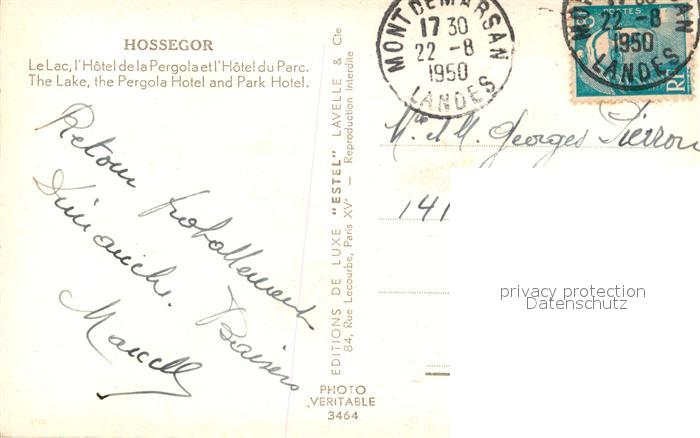 HOSSEGOR
Le Lac, l'Hôtel de la Pergola et l'Hôtel du Parc.
The Lake, the Pergola Hotel and Park Hotel.
Retour probablement
Dimanche. Baisers
Marcelle
EDITIONS DE LUXE "ESTEL" LAVELLE & Cie
84, Rue Lecourbe, Paris XVe — Reproduction Interdite
PHOTO
VERITABLE
3464
MONT DE MARSAN
17 30
22 -8
1950
LANDES
22 -8
1950
LANDES
8F
POSTES
RF
Georges Pierron
141
privacy protection
Datenschutz